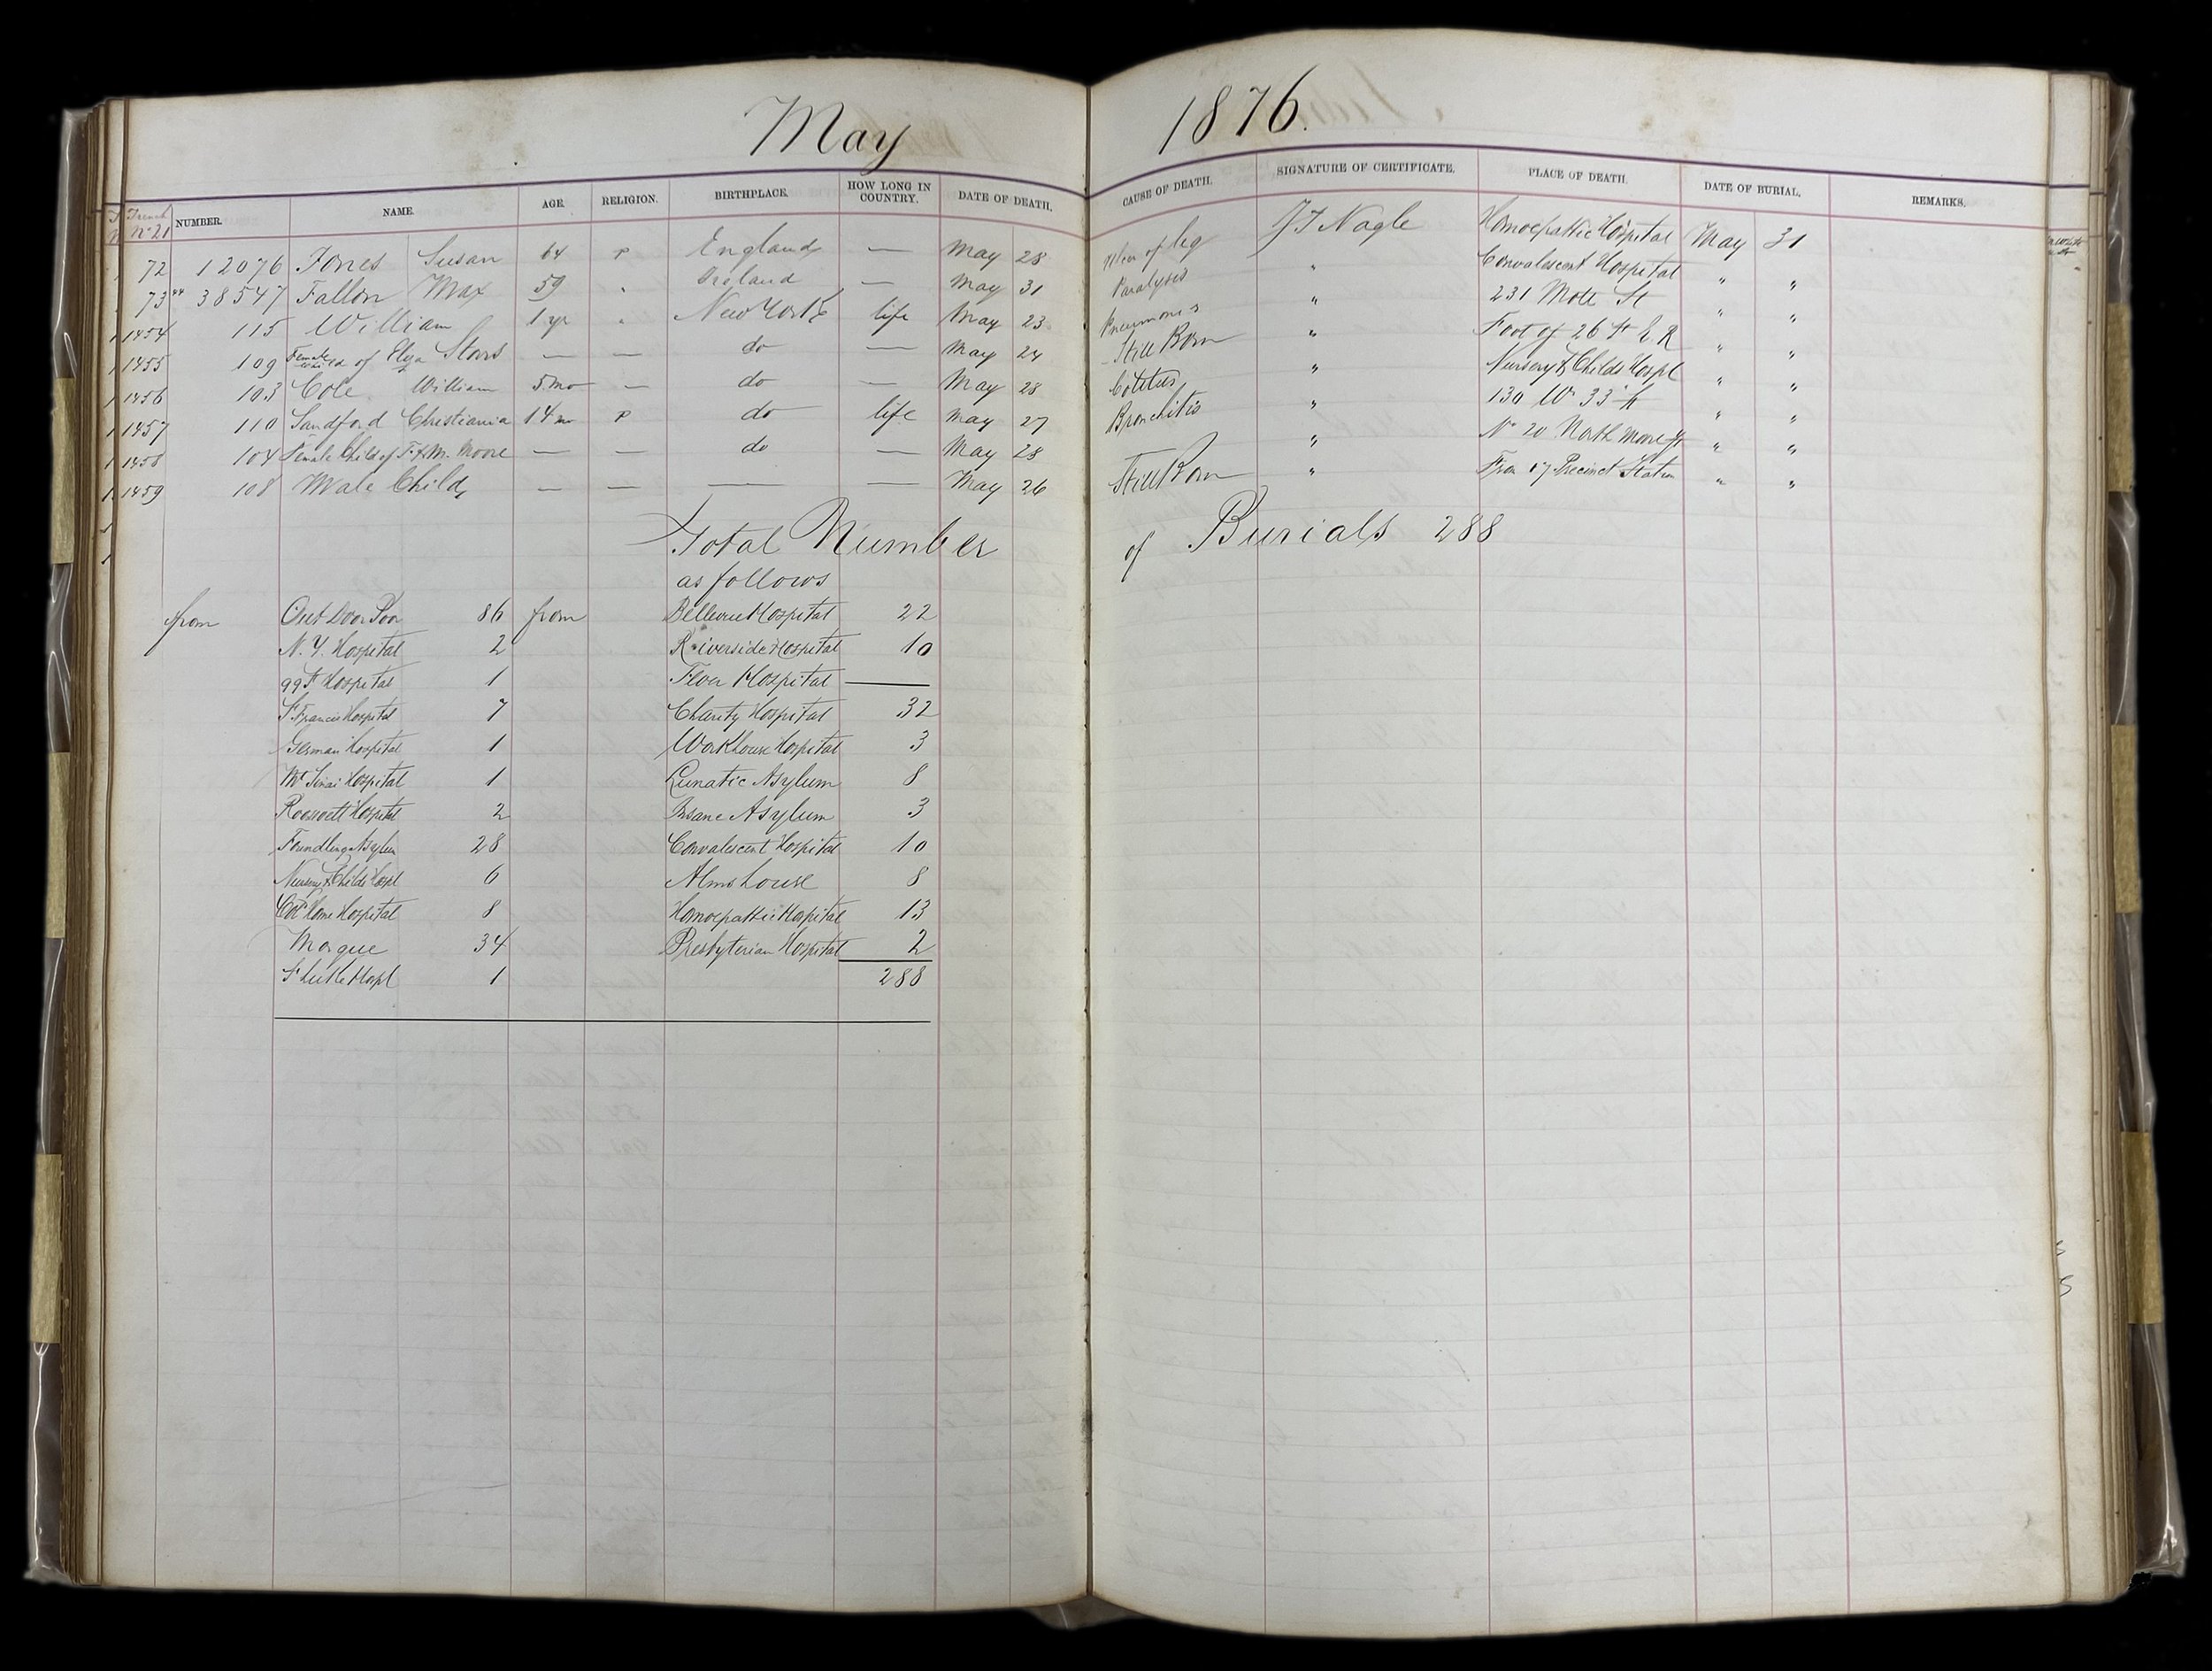 May 1876.
Trench No 21 NUMBER. NAME. AGE. RELIGION. BIRTHPLACE. HOW LONG IN COUNTRY. DATE OF DEATH. CAUSE OF DEATH. SIGNATURE OF CERTIFICATE. PLACE OF DEATH. DATE OF BURIAL. REMARKS.
72 12076 Jones Susan 64 P England — May 28 Ulcer of leg J T Nagle Homoepathic Hospital May 31
73 38547 Fallon Max 59 " Ireland — May 31 Paralysis " Convalescent Hospital " "
1454 115 William 1 yr " New York life May 23 Pneumonia " 231 Mott St " "
1455 109 Female Child of Eliza Storrs — — do — May 24 Still Born " Foot of 26 St E. R " "
1456 103 Cole William 5 mo — do — May 28 " Nursery & Childs Hospl " "
1457 110 Sandford Christiania 14 mo P do life May 27 Bronchitis " 130 W. 33 St " "
1458 104 Female Child of F. & M. Moore — — do — May 28 " No 20 North Moore St " "
1459 108 Male Child — — — — May 26 Still Born " From 17 Precinct Station " "
Total Number of Burials 288
as follows
from Out Door Poor 86 from Bellevue Hospital 22
N. Y. Hospital 2 Riverside Hospital 10
99 St Hospital 1 Fever Hospital —
St Francis Hospital 7 Charity Hospital 32
German Hospital 1 Workhouse Hospital 3
Mt Sinai Hospital 1 Lunatic Asylum 8
Roosevelt Hospital 2 Insane Asylum 3
Foundling Asylum 28 Convalescent Hospital 10
Nursery & Childs Hospl 6 Almshouse 8
Cold Home Hospital 8 Homoepathic Hospital 13
Morgue 34 Presbyterian Hospital 2
St Luke Hospl 1 288